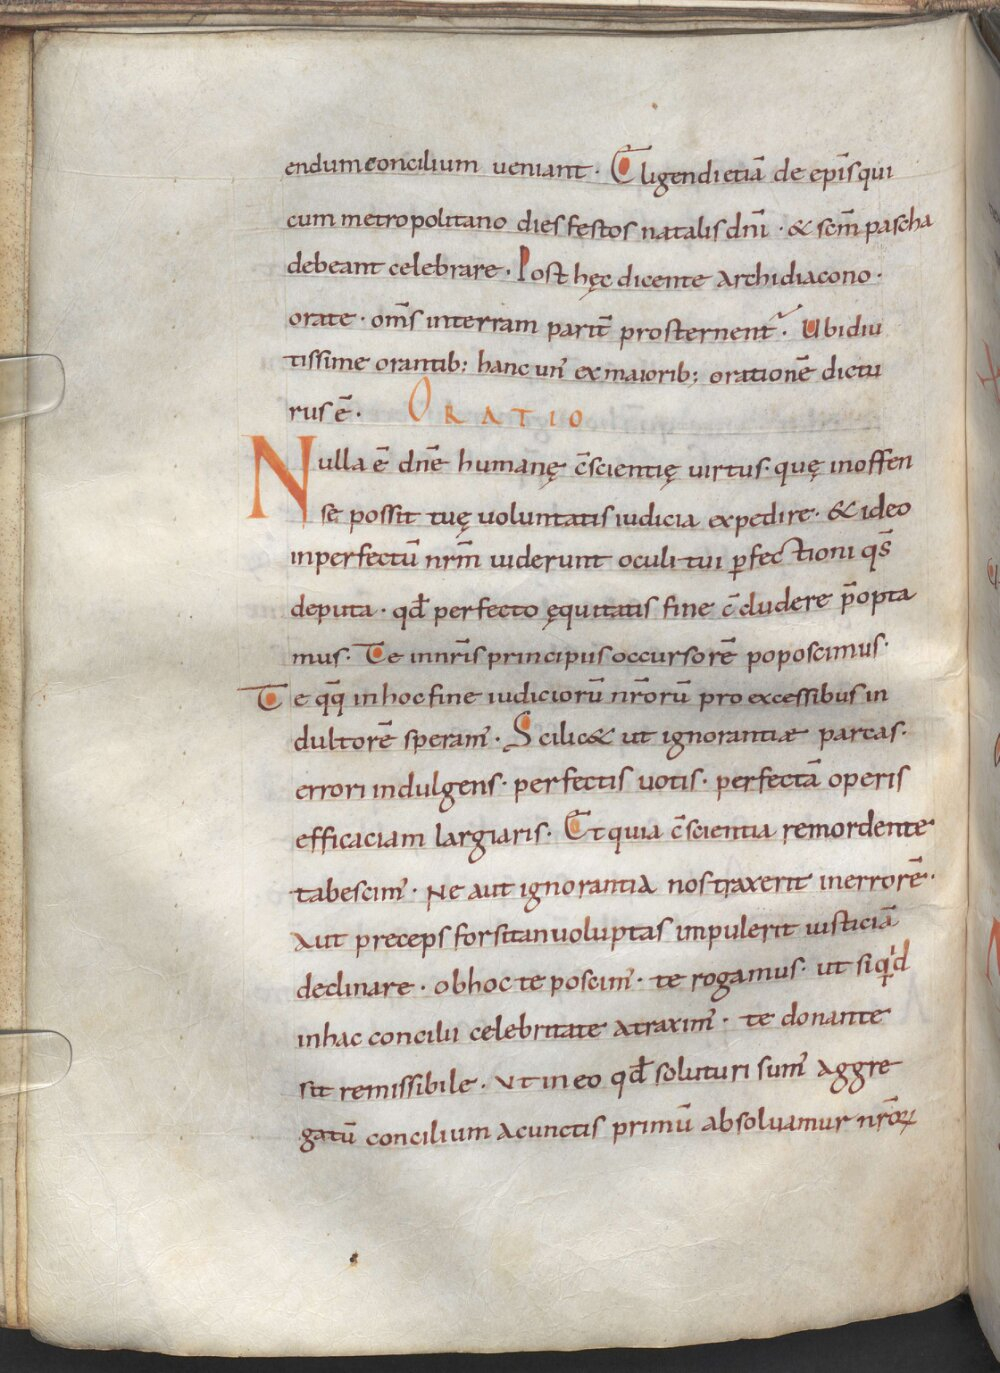 endum concilium ueniant · Eligendi etiā de ep̄is qui
cum metropolitano dies festos natalis dn̄i · & sc̄m pascha
debeant celebrare · Post hęc dicente archidiacono ·
orate · om̄s in terram parit̄ prosternent᷑ · Ubi diu
tissime orantib; hanc un̄ ex maiorib; orationē dictu
rus ē · ORATIO
Nulla ē dn̄e humanę c̄scientię uirtus · quę inoffen
se possit tuę uoluntatis iudicia expedire · & ideo
inperfectū nr̄m uiderunt oculi tui ꝑfectioni qs̄
deputa · qd̄ perfecto ęquitatis fine c̄cludere p̄opta
mus · Te in nr̄is principiis occursorē poposcimus ·
Te qq̄ in hoc fine iudiciorū nr̄orū pro excessibus in
dultorē speram̄ · Scilic& ut ignorantiæ parcas ·
errori indulgens · perfectis uotis · perfectā operis
efficaciam largiaris · Et quia c̄scientia remordente
tabescim̄ · Ne aut ignorantia nos traxerit in errorē ·
Aut preceps forsitan uoluptas impulerit iusticiā
declinare · ob hoc te poscim̄ · te rogamus · ut si qͥd
in hac concilii celebritate atraxim̄ · te donante
sit remissibile · Vt in eo qd̄ soluturi sum̄ aggre
gatū concilium a cunctis primū absoluamur nr̄oꝝ